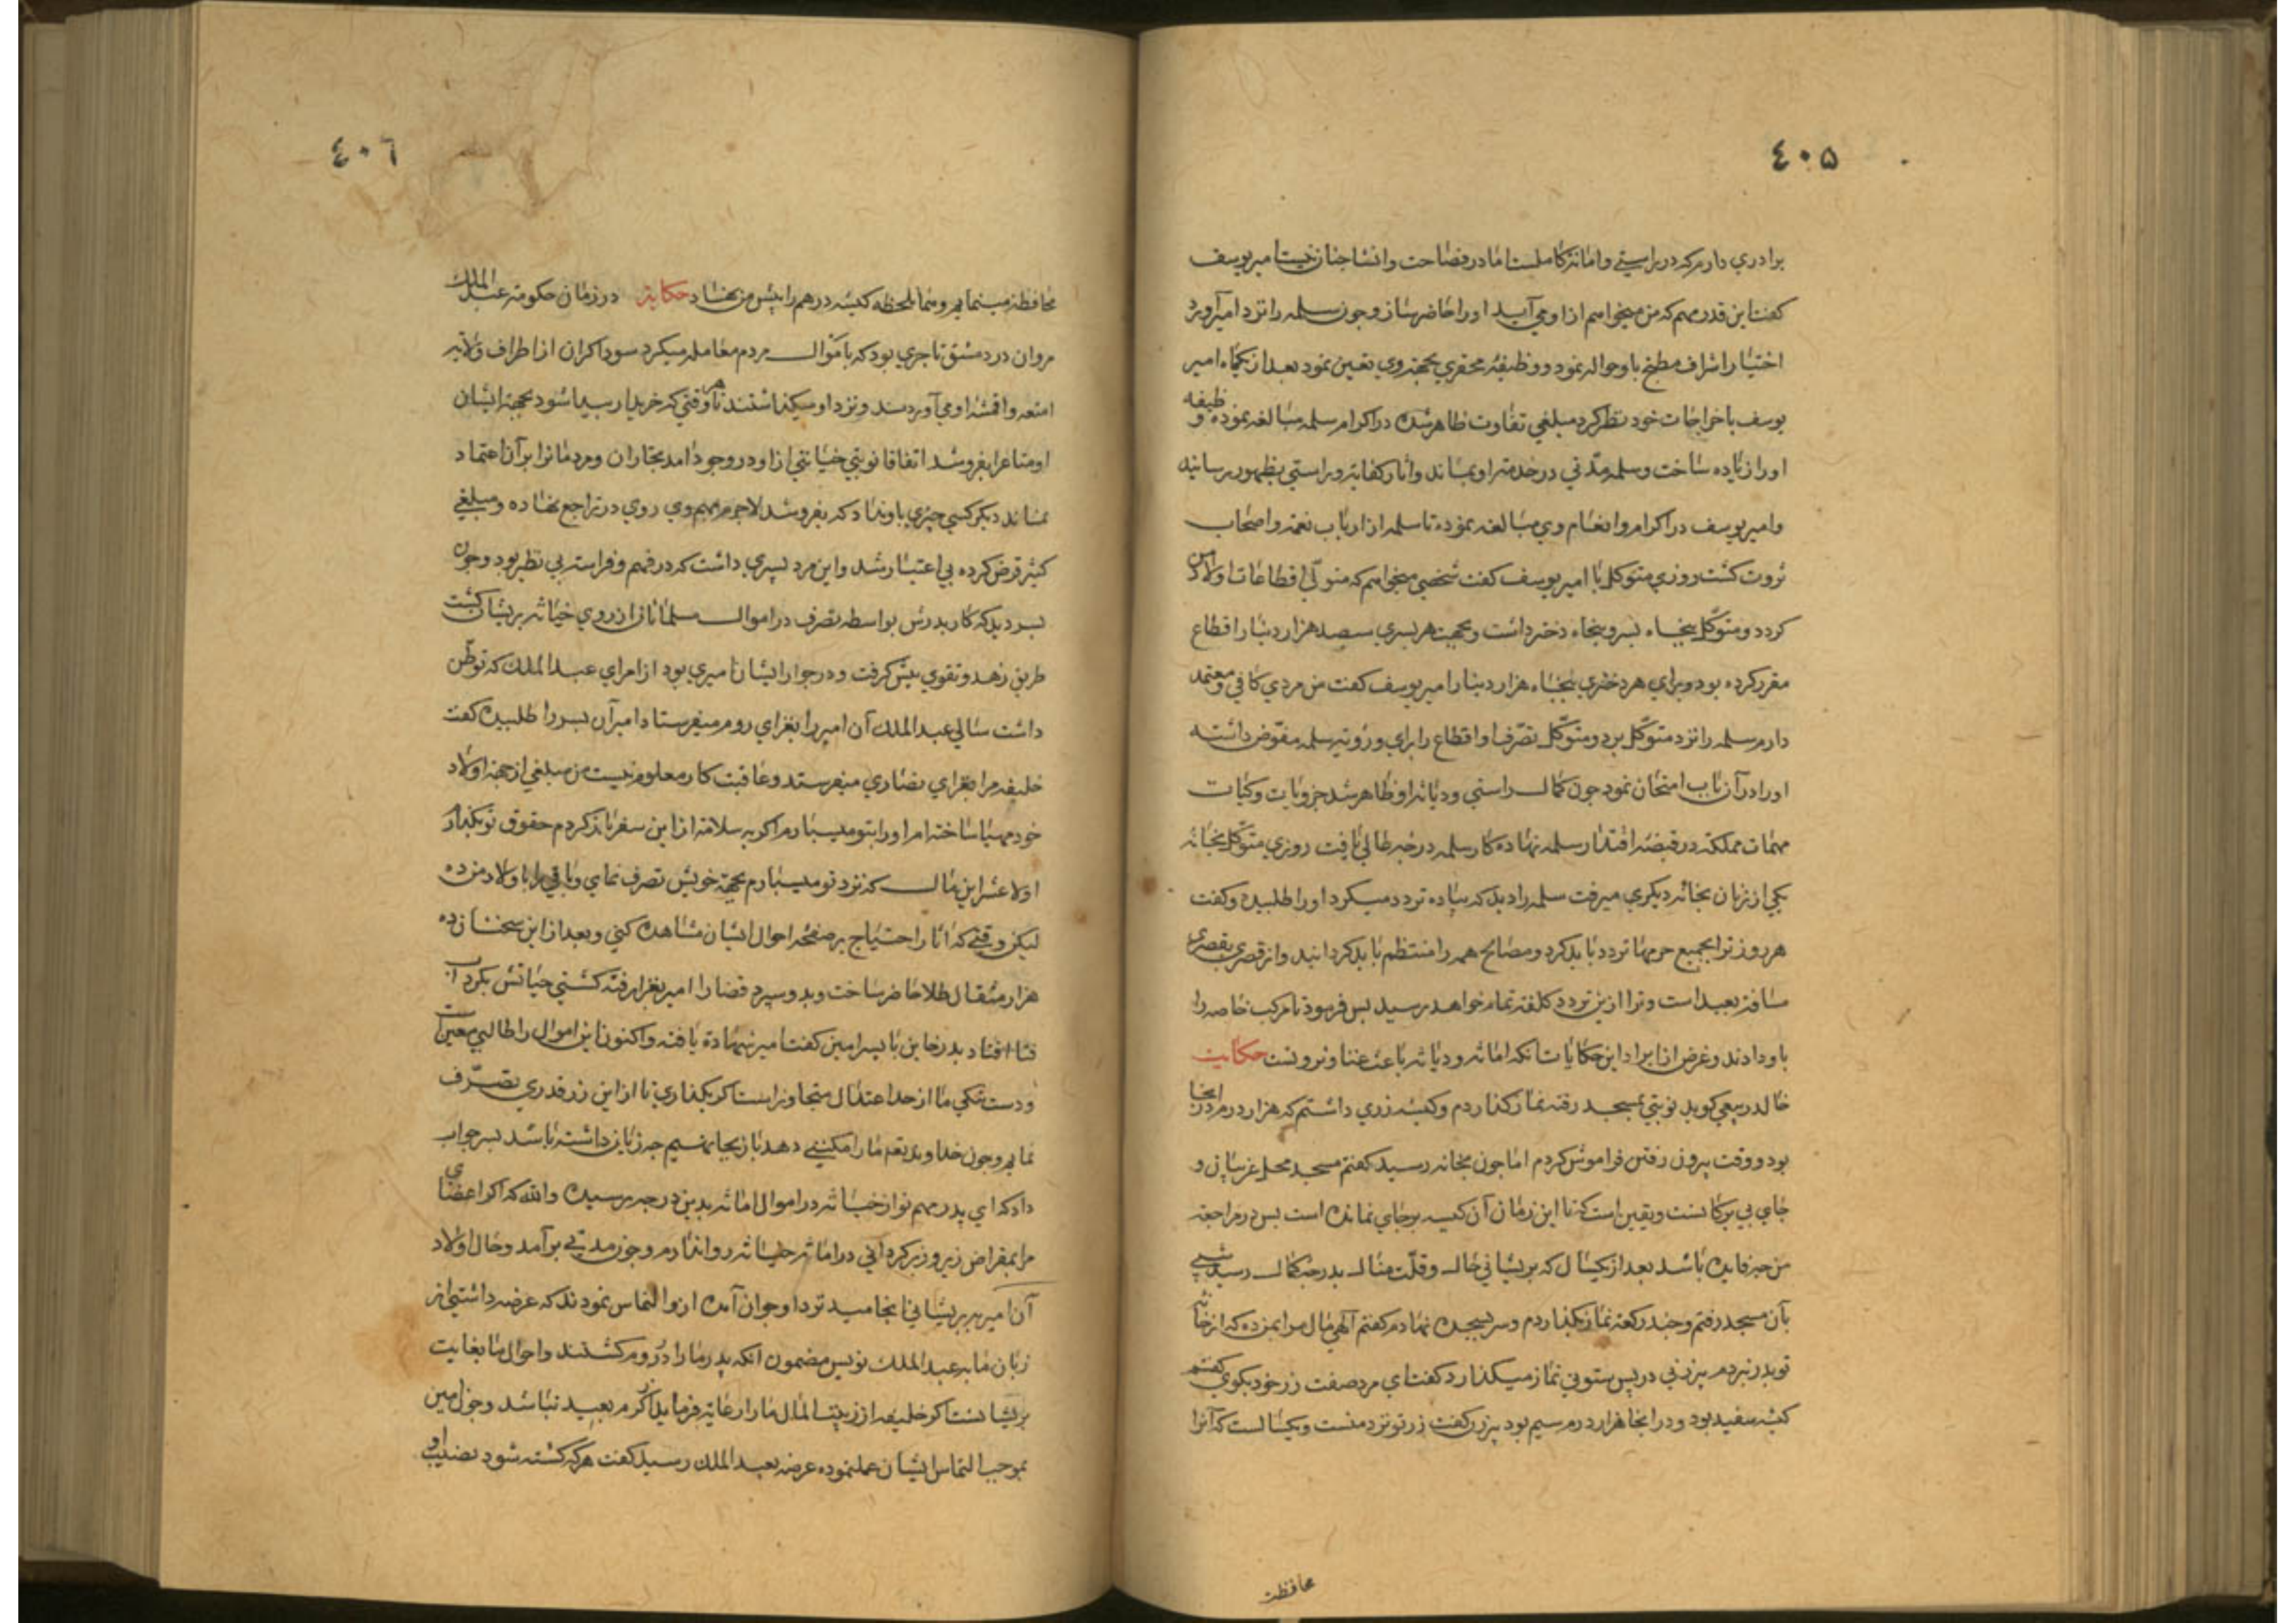 ٤٠٥
برادری دارم که در راستی و امانت کاملست اما در فصاحت و انشا چنان نیست امیر یوسف
کفت این قدر مهم که من میخواهم از او می آید او را حاضر ساز و چون سلمه را نزد امیر آورد
اختیار اشراف مطبخ باو حواله نمود و وظیفهٔ محقری بجهة وی تعین نمود بعد از یکماه امیر
یوسف باخراجات خود نظر کرد مبلغی تفاوت ظاهر شده در اکرام سلمه مبالغه نموده و ظیفه
او را زیاده ساخت و سلمه مدّتی در خدمت او بماند و اثار کفایة و راستی بظهور رسانید
و امیر یوسف در اکرام و انعام وی مبالغه نموده تا سلمه از ارباب نعمة و اصحاب
ثروت کشت روزی متوکل با امیر یوسف کفت شخصی میخواهم که متولی اقطاعات اولاد من
کردد و متوکل پنجاه پسر و پنجاه دختر داشت و بجهت هر پسری سیصد هزار دینار اقطاع
مقرر کرده بود و برای هر دختری پنجاه هزار دینار امیر یوسف کفت من مردی کافی و معتمد
دارم سلمه را نزد متوکل برد و متوکل تصرف اقطاع را برای و رویة سلمه مفوّض داشته
او را در آن باب امتحان نمود چون کمال راستی و دیانة او ظاهر شد جزویات و کلیات
مهمات مملکة در قبضهٔ اقتدار سلمه نهاده کار سلمه درجهٔ عالی یافت روزی متوکل بخانهٔ
یکی از زنان بخانهٔ دیکری میرفت سلمه را دید که پیاده تردد میکرد او را طلبیده و کفت
هر روز ترا بجمیع حرمها تردد باید کرد و مصالح همه را منتظم باید کردانید و از قصری بقصری
مسافة بعید است و ترا ازین تردد کلفة تمام خواهد رسید پس فرمود تا مرکب خاصه را
باو دادند و غرض از ایراد این حکایات انکه امانة و دیانة باعث غنا و ثروتست حکایت
خالد ربیعی کوید نوبتی بمسجد رفته نماز کذاردم و کیسهٔ زری داشتم که هزار درم در انجا
بود و وقت بیرون رفتن فراموش کردم اما چون بخانه رسید کفتم مسجد محل غریبان و
جای بی برکانست و یقین است که تا این زمان آن کیسه برجای نمانده است پس در مراجعة
من چه فایده باشد بعد از یکسال که پریشانی حال و قلّت منال بدرجهٔ کمال رسید شبی
بآن مسجد رفتم و چند رکعة نماز بکذاردم و سر بسجده نهادم کفتم آلهی مال مرا بمن ده که از خانهٔ
تو بدر نبردم پیرزنی در پس ستونی نماز میکذارد کفت ای مرد صفت زر خود بکوی کفتم
کیسه سفید بود و در انجا هزار درم سیم بود پیرزن کفت زر تو نزد منست و یکسالست که آنرا
محافظت
٤٠٦
محافظة مینمایم و منما بلحظه کیسهٔ درهم را پیش من نهاد حکایة در زمان حکومة عبد الملك
مروان در دمشق تاجری بود که باموال مردم معامله میکرد سوداکران از اطراف ولایة
امتعه و اقمشه او می آوردند و نزد او میکذاشتند تا هر وقتی که خریدار پیدا شود بجهة ایشان
او متاع را بفروشد اتفاقا نوبتی خیانتی از او در وجود امد بتجاران و مردمانرا بر آن اعتماد
نماند دیکر کسی چیزی باو نداد که بفروشد لاجرم مهم وی روی در تراجع نهاده و مبلغی
کثیر قرض کرده بی اعتبار شد و این مرد پسری داشت که در فهم و فراست بی نظیر بود و چون
پسر دید که کار پدرش بواسطه تصرف در اموال مسلمانان از روی خیانة پریشان کشت
طریق زهد و تقوی پیش کرفت و در جوار ایشان امیری بود از امرای عبد الملك که توطّن
داشت سالی عبد الملك آن امیر را بغزای روم میفرستاد امیر آن پسر را طلبیده کفت
خلیفه مرا بغزای نصاری میفرستد و عاقبت کار معلوم نیست من مبلغی از جهة اولاد
خود مهیا ساخته ام او را بتو میسپارم اکر به سلامة از این سفر باز کردم حقوق تو بکذارم
اولا عشر این مال که نزد تو میسپارم بجهة خویش تصرف نمای و باقی را باولاد من ده
لیکن وقتی که اثار احتیاج بر صفحهٔ احوال ایشان مشاهده کنی و بعد از این سخنان ده
هزار مثقال طلا حاضر ساخت و بدو سپرد قضا را امیر بغزا رفته کشتی حیاتش بکرداب
فنا افتاد پدر خاین با پسر امین کفت امیر شهادة یافته و اکنون این اموال را طالبی معین نیست
و دست تنکی ما از حد اعتدال متجاوز است اکر بکذاری تا از این زر قدری تصرّف
نمایم و چون خداوند تعم ما را مکنتی دهد باز بجا نهیم چه زیان داشته باشد پسر جواب
داد که ای پدر مهم تو از خیانة در اموال امانة بدین درجه رسیده والله که اکر اعضای
مرا بمقراض زیر و زبر کردانی در امانة خیانة روا ندارم و چون مدتی برآمد و حال اولاد
آن امیر به پریشانی انجامید نزد او جوان آمده ازو التماس نمودند که عرضه داشتی از
زبان ما بر عبد الملك نویس مضمون انکه پدر ما را در روم کشتند و احوال ما بغایت
پریشانست اکر خلیفه از زر بیت المال ما را رعایة فرماید از کرم بعید نباشد و جوان امین
بموجب التماس ایشان عمل نموده عرضه بعبد الملك رسید کفت هر که کشته شود نصیب او